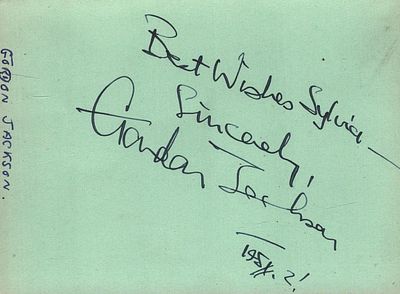 Best Wishes Sylvia —
Sincerely,
Gordon Jackson
GORDON JACKSON.